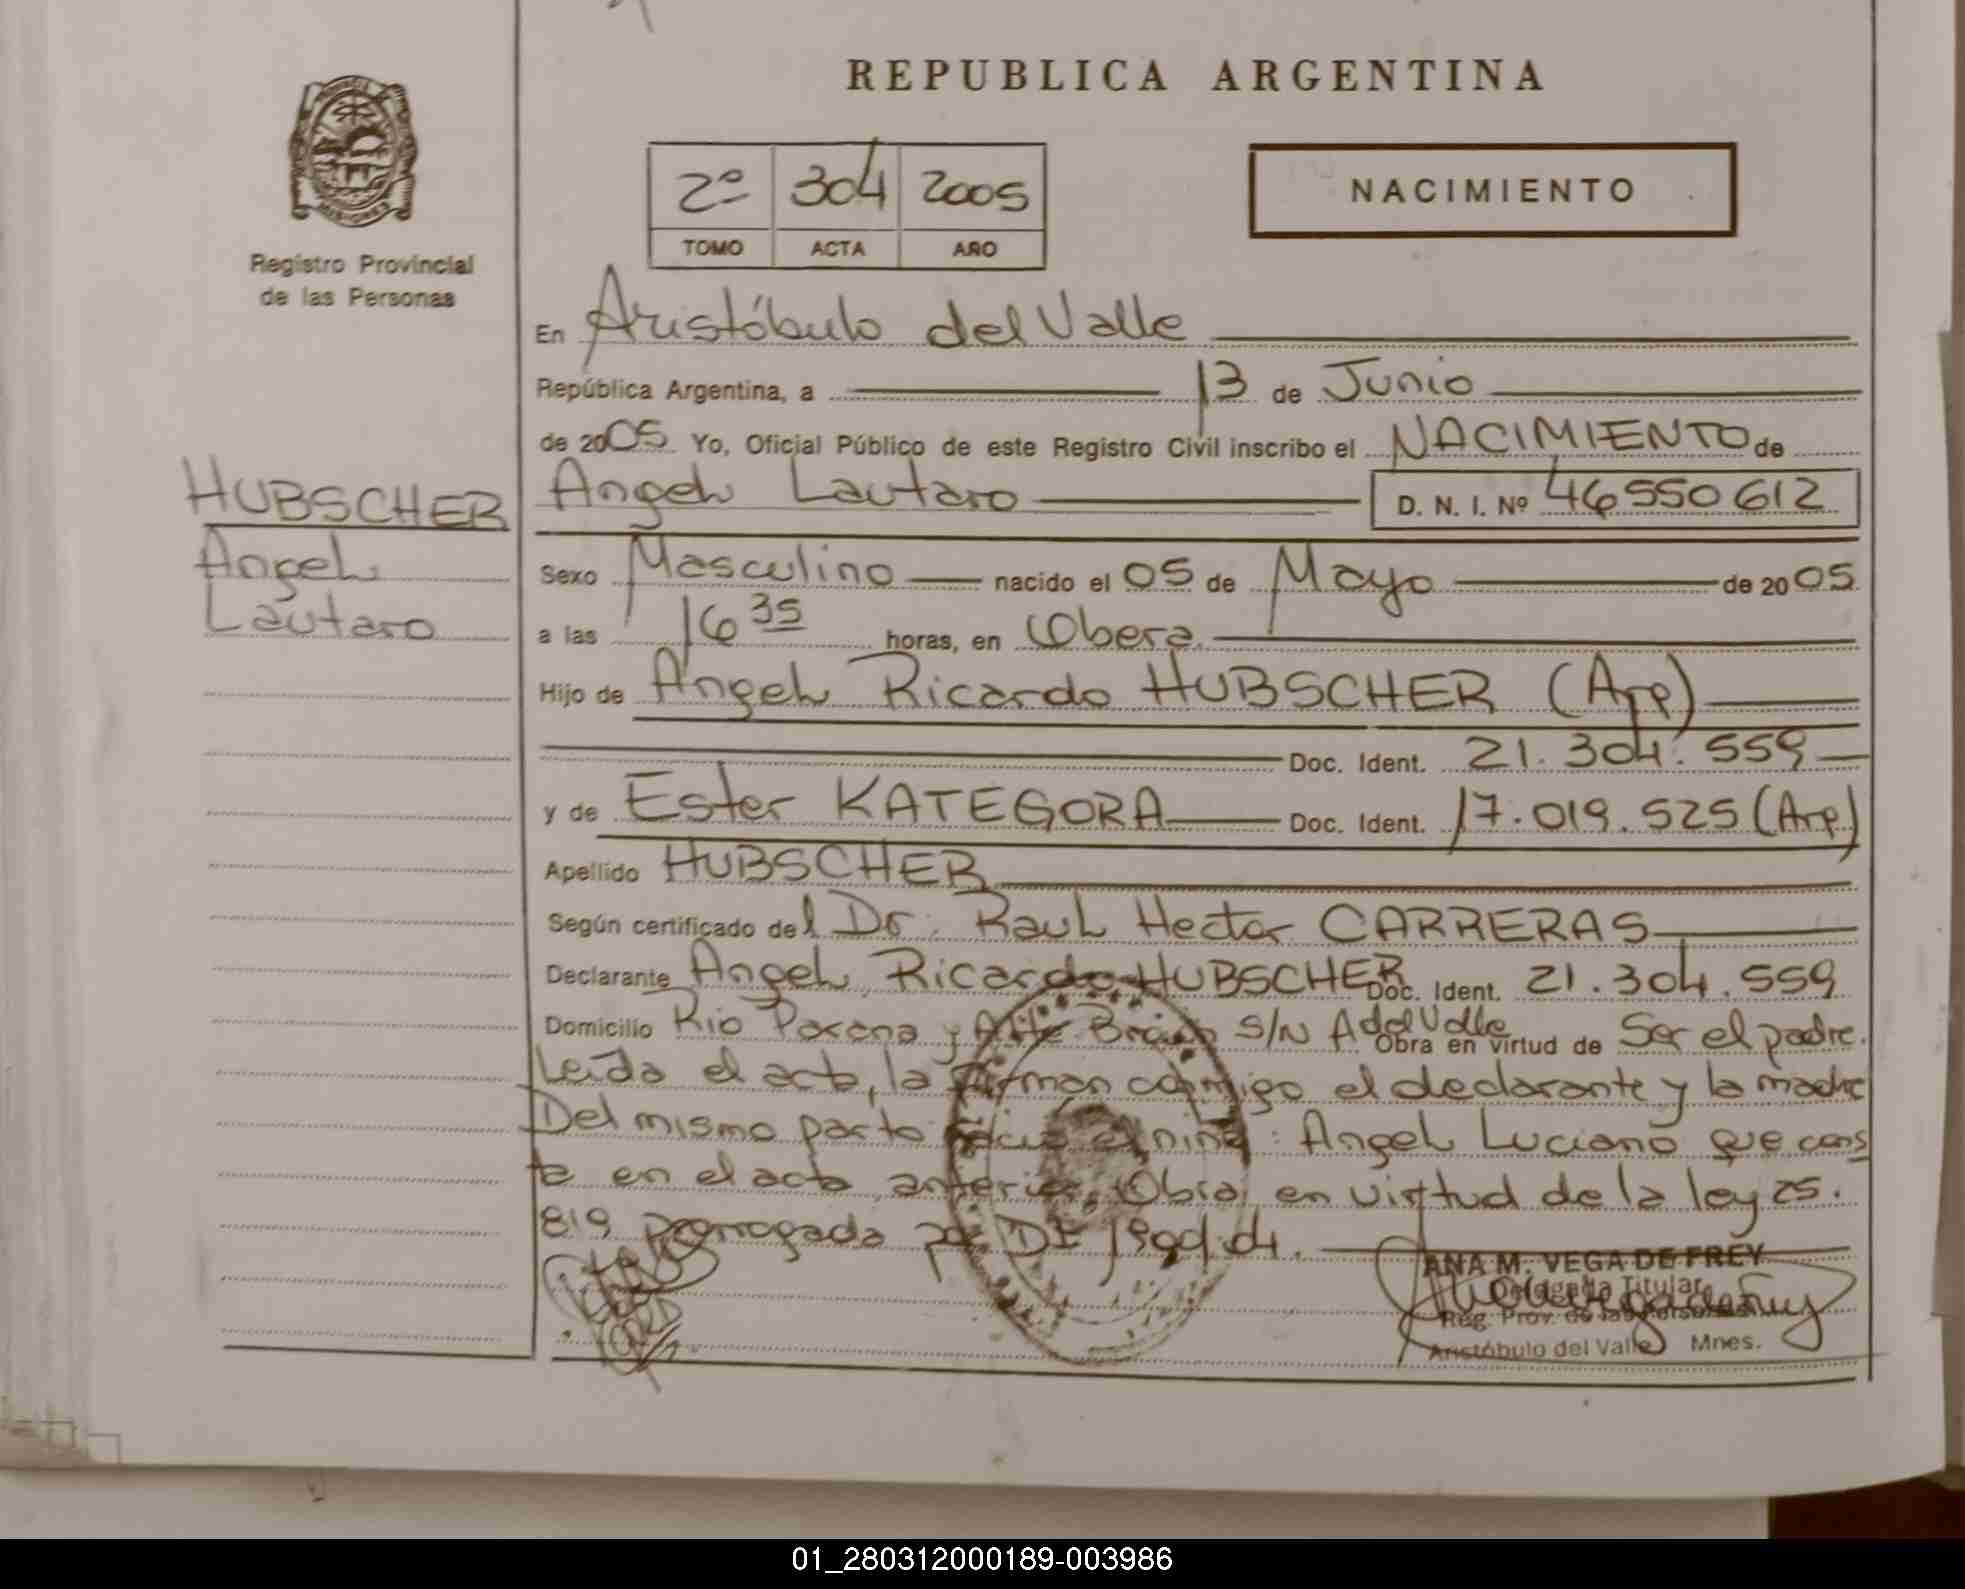 REPUBLICA ARGENTINA
2º 304 2005
TOMO ACTA AÑO
NACIMIENTO
Registro Provincial
de las Personas
En Aristóbulo del Valle
República Argentina, a 13 de Junio
de 2005 Yo, Oficial Público de este Registro Civil inscribo el NACIMIENTO de
HUBSCHER
Angel
Lautaro
Angel Lautaro D. N. I. Nº 46550612
Sexo Masculino nacido el 05 de Mayo de 2005
a las 16 35 horas, en Obera
Hijo de Angel Ricardo HUBSCHER (Arg)
Doc. Ident. 21.304.559
y de Ester KATEGORA Doc. Ident. 17.019.525 (Arg)
Apellido HUBSCHER
Según certificado del Dr. Raul Hector CARRERAS
Declarante Angel Ricardo HUBSCHER Doc. Ident. 21.304.559
Domicilio Rio Parana y Alte Brown S/N A del Valle Obra en virtud de Ser el padre.
Leída el acta, la firman conmigo el declarante y la madre
Del mismo parto nació el niño: Angel Luciano que cons
ta en el acta anterior. Obra en virtud de la ley 25.
819 prorrogada por
ANA M. VEGA DE FREY
Delegada Titular
Reg. Prov. de las Personas
Aristóbulo del Valle Mnes.
01_280312000189-003986